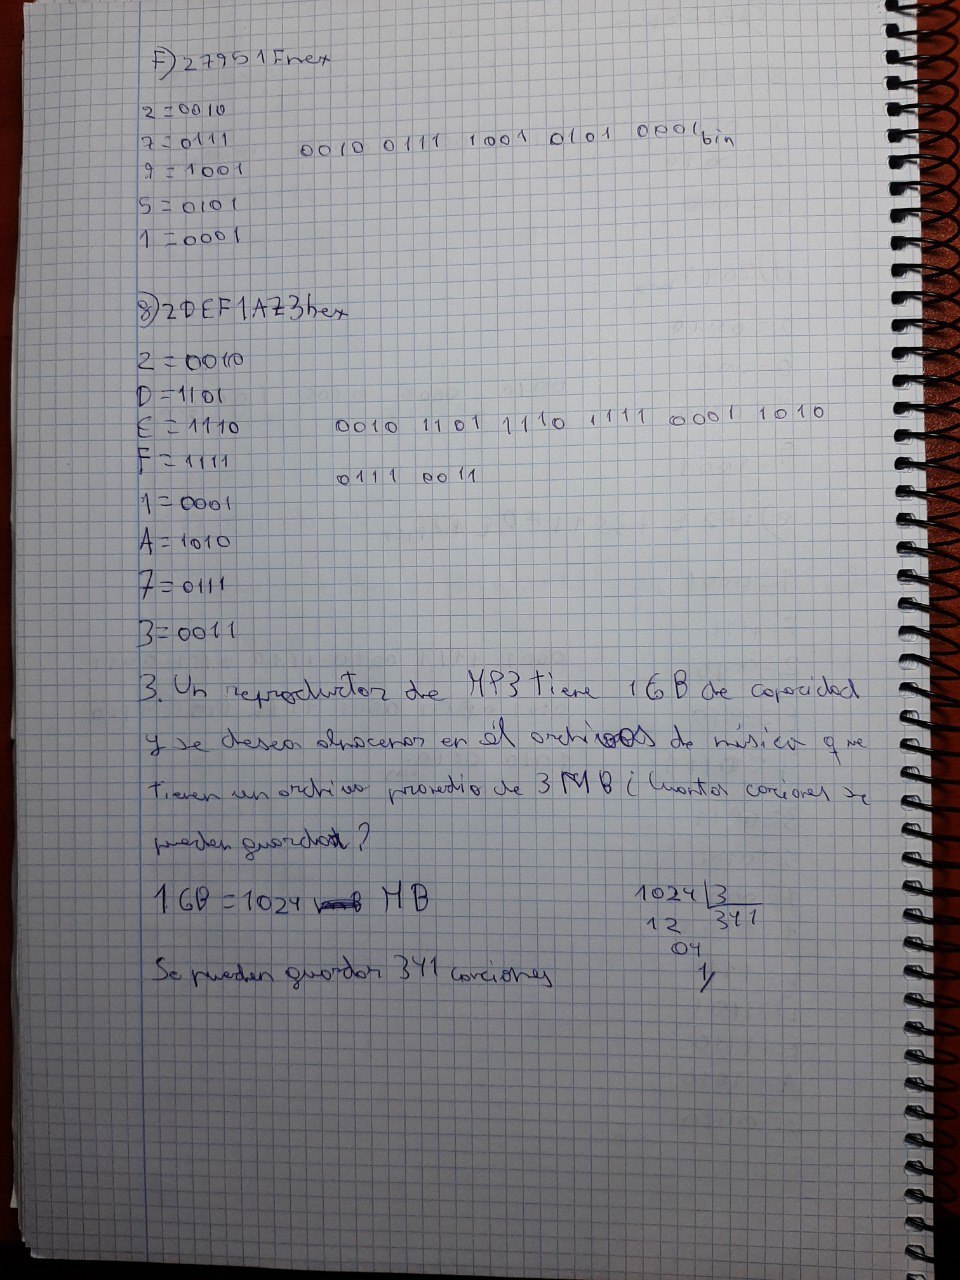 F) 27951Fhex
2 = 0010
7 = 0111
0010 0111 1001 0101 0001 bin
9 = 1001
5 = 0101
1 = 0001
8) 2DEF1A73hex
2 = 0010
D = 1101
E = 1110
0010 1101 1110 1111 0001 1010
F = 1111
0111 0011
1 = 0001
A = 1010
7 = 0111
3 = 0011
3. Un reproductor de MP3 tiene 1GB de capacidad
y se desea almacenar en él archivos de música que
tienen un archivo promedio de 3 MB ¿Cuantas canciones se
pueden guardar?
1GB = 1024 MB
1024 3
12 341
04
1
Se pueden guardar 341 canciones